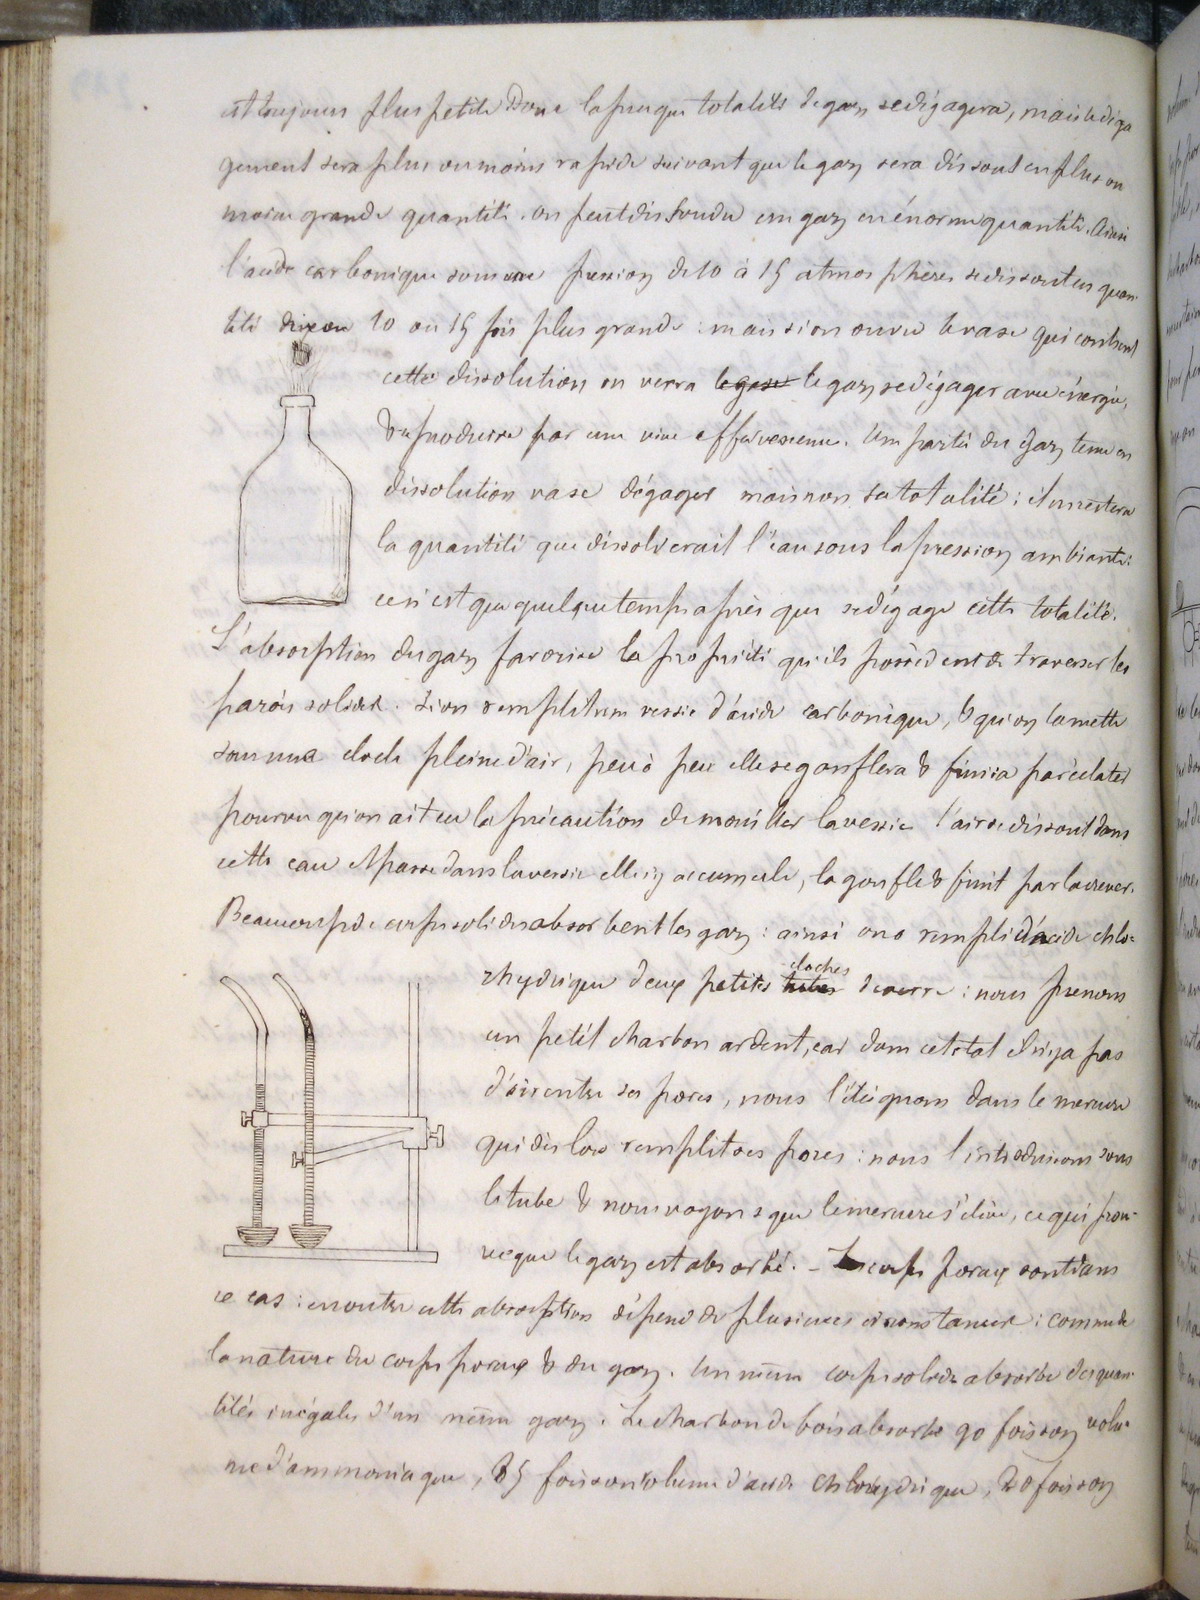 est toujours plus petite Donc la presque totalité de gaz se dégagera, mais le déga
gement sera plus ou moins rapide suivant que le gaz sera dissout en plus ou
moins grande quantité. on peut dissoudre un gaz en énorme quantité. Ainsi
l'acide carbonique sous une pression de 10 à 15 atmosphères se dissout en quan-
tité 10 ou 15 fois plus grande : mais si on ouvre le vase qui contient
cette dissolution on verra le gaz se dégager avec énergie,
& se produire par une vive effervescence. Une partie du gaz tenu en
dissolution va se dégager mais non sa totalité : il en restera
la quantité que dissolverait l'eau sous la pression ambiante :
ce n'est que quelque temps après que se dégage cette totalité.
L'absorption du gaz favorise la propriété qu'ils possèdent de traverser les
parois solides. Si on remplit une vessie d'acide carbonique, & qu'on la mette
sous une cloche pleine d'air, peu à peu elle se gonflera & finira par éclater
pourvu qu'on ait eu la précaution de mouiller la vessie l'air se dissout dans
cette eau & passe dans la vessie elle s'y accumule, la gonfle & finit par la crever.
Beaucoup de corps solides absorbent les gaz : ainsi on a rempli d'acide chlo-
rhydrique deux petites cloches de verre : nous prenons
un petit charbon ardent, car dans cet état il n'y a pas
d'air entre ses pores, nous l'éteignons dans le mercure
qui dès lors remplit ses pores : nous l'introduisons sous
le tube & nous voyons que le mercure s'élève, ce qui prou-
ve que le gaz est absorbé. – Les corps poreux sont dans
ce cas : en outre cette absorption dépend de plusieurs circonstances : comme de
la nature du corps poreux & du gaz. Un même corps solide absorbe des quan-
tités inégales d'un même gaz. Le charbon de bois absorbe 90 fois son volu-
me d'ammoniaque, 85 fois son volume d'acide chlorhydrique, 20 fois son